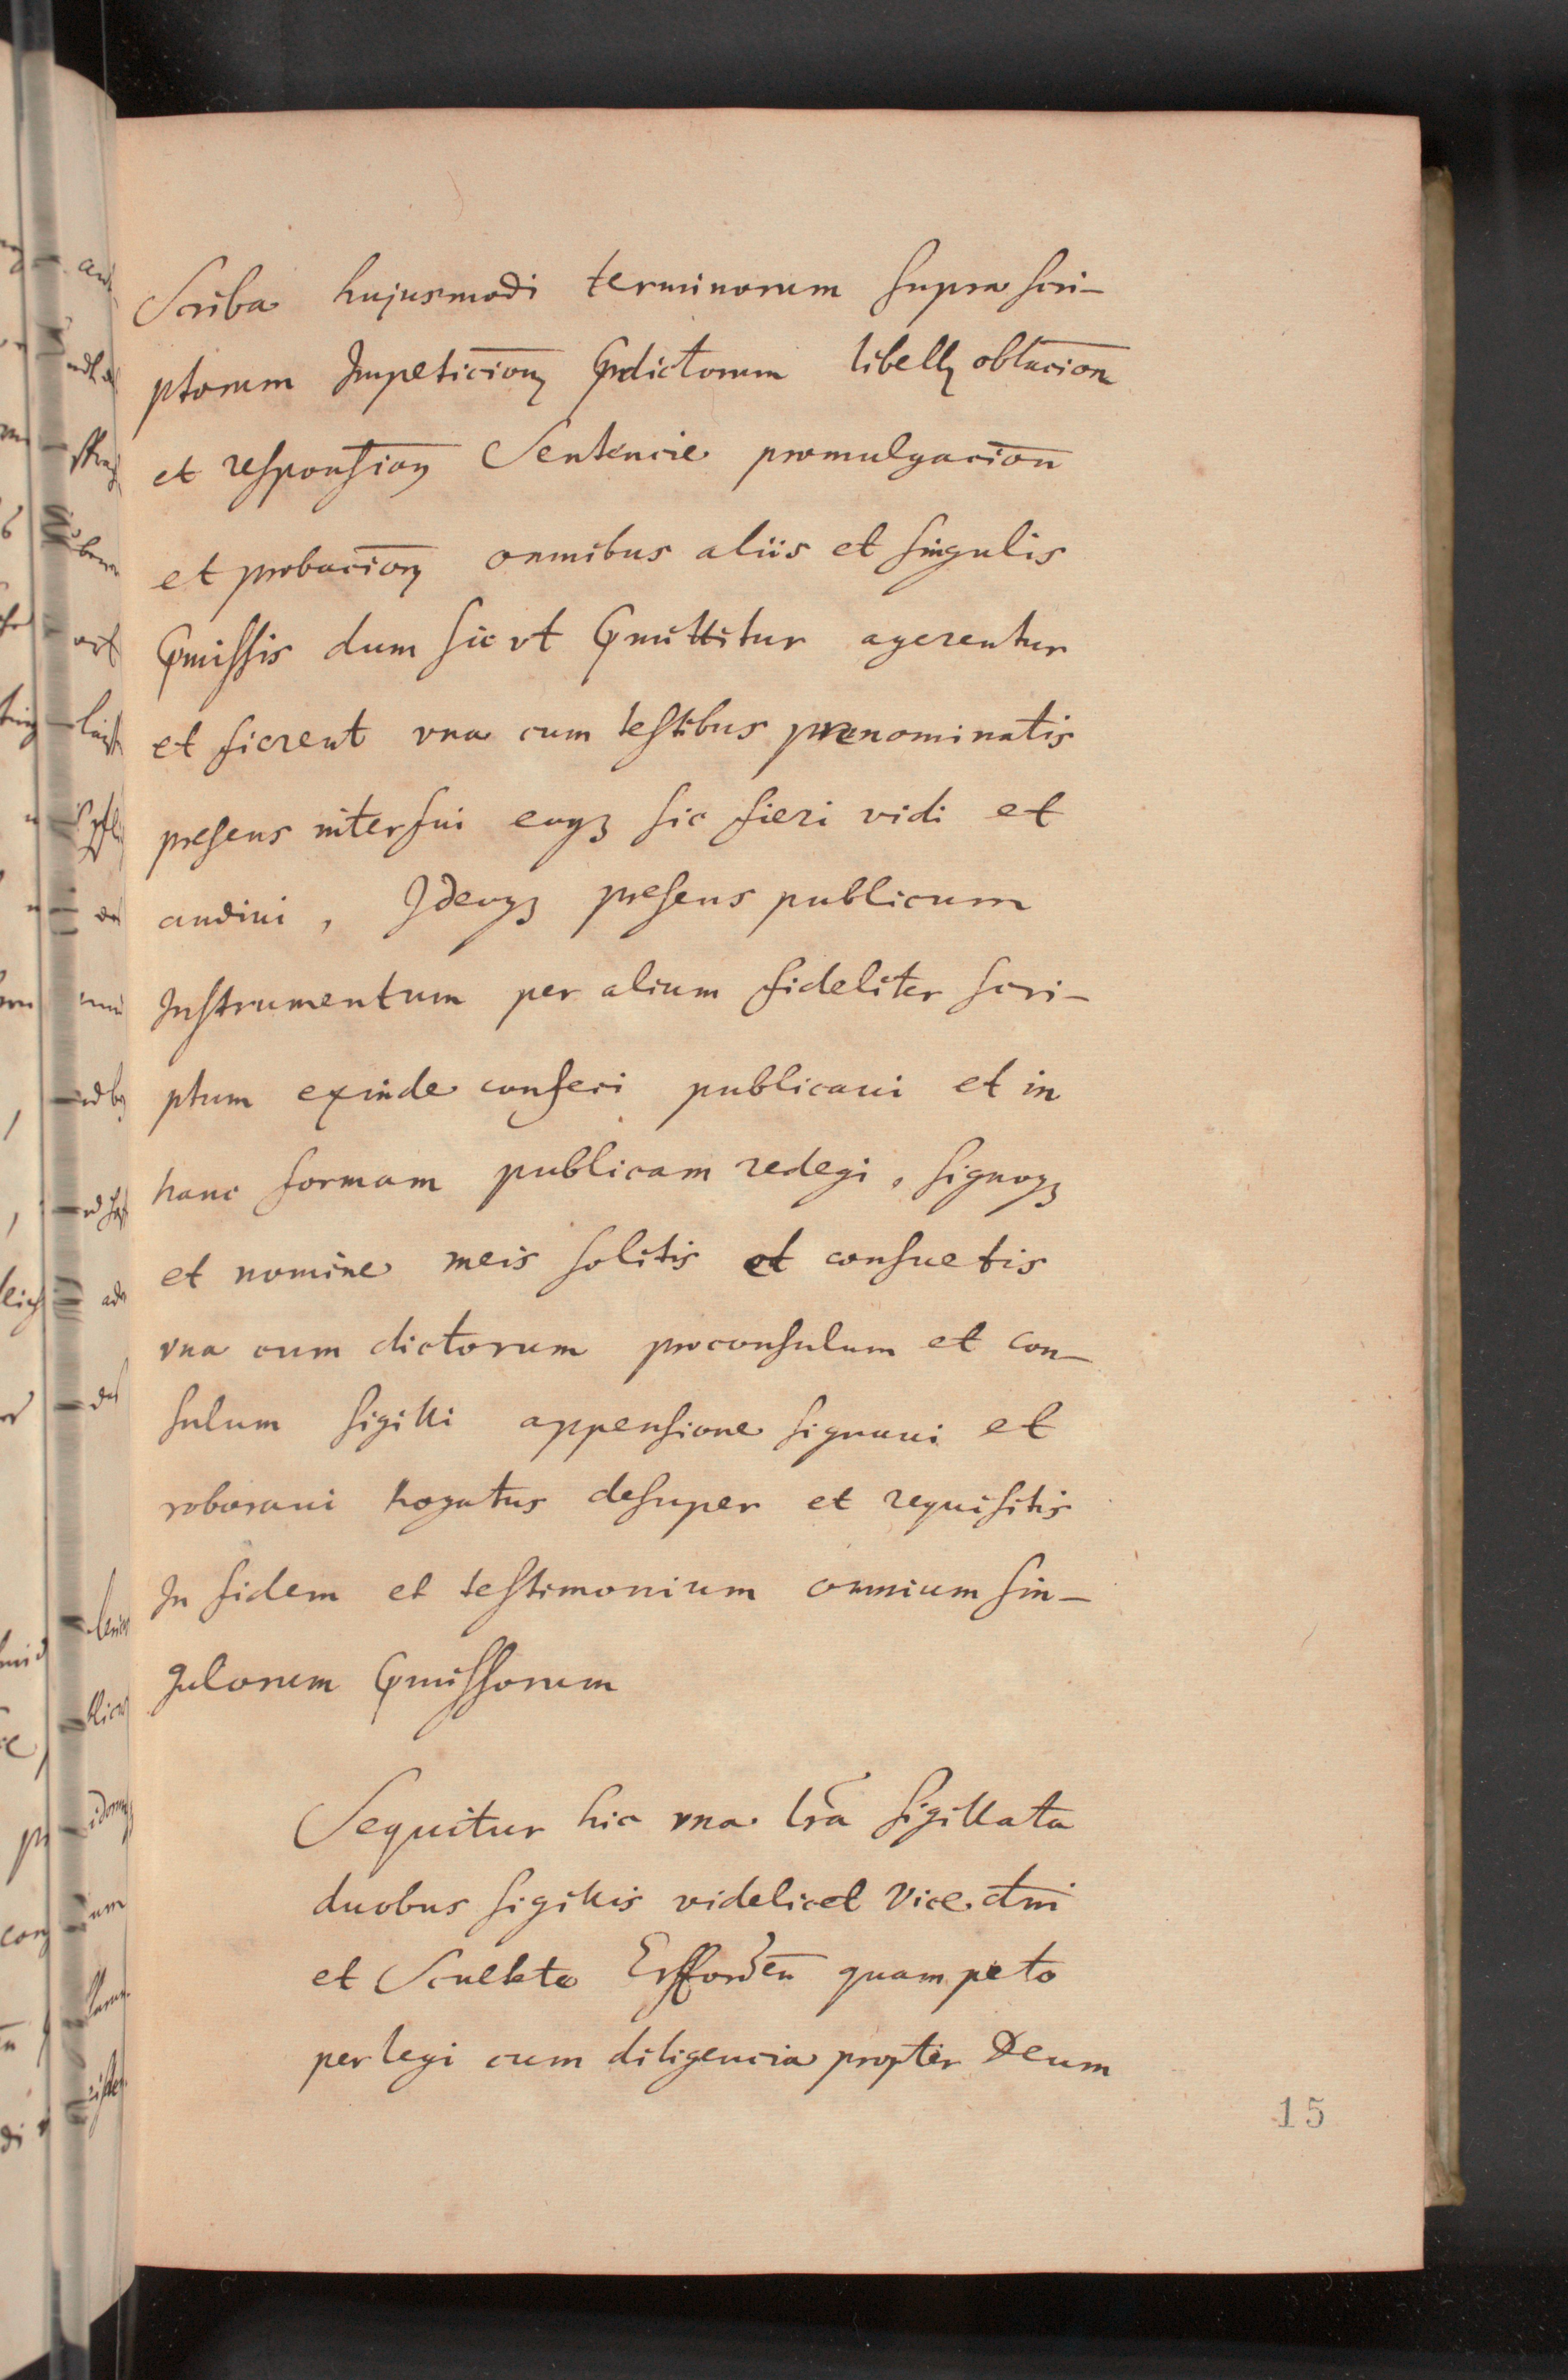 Scriba hujusmodi terminorum supra scri-
ptorum Impeticion̄ Pr̄dictorum libell oblacion̄
et responsion̄ Sentencie promulgacion̄
et probacion̄ omnibus aliis et singulis
Pr̄missis dum sic vt Pr̄mittitur agerentur
et fierent vna cum testibus prenominatis
presens interfui eaqꝫ sic fieri vidi et
audiui, Ideoqꝫ presens publicum
Instrumentum per alium fideliter scri-
ptum exinde confeci publicaui et in
hanc formam publicam redegi, signoqꝫ
et nomine meis solitis et consuetis
vna cum dictorum proconsulum et con-
sulum sigilli appensione signaui et
roboraui rogatus desuper et requisitis
In fidem et testimonium omnium sin-
gulorum Pr̄missorum
Sequitur hic vna lr̄a sigillata
duobus sigillis videlicet Vice dm̄i
et Sculteto Erfforden̄ quam peto
perlegi cum diligencia propter Deum
15